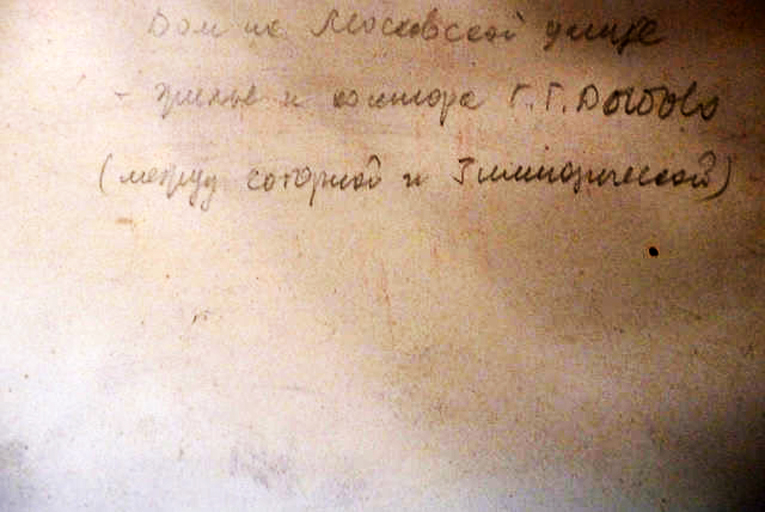 Дом на Московской улице
- жилье и контора Г.Г.
(между соборной и Гимназической)